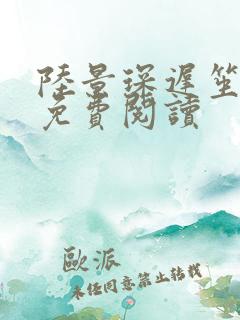 陸景琛遲笙
免費閱讀
歐派
未經同意禁止轉載